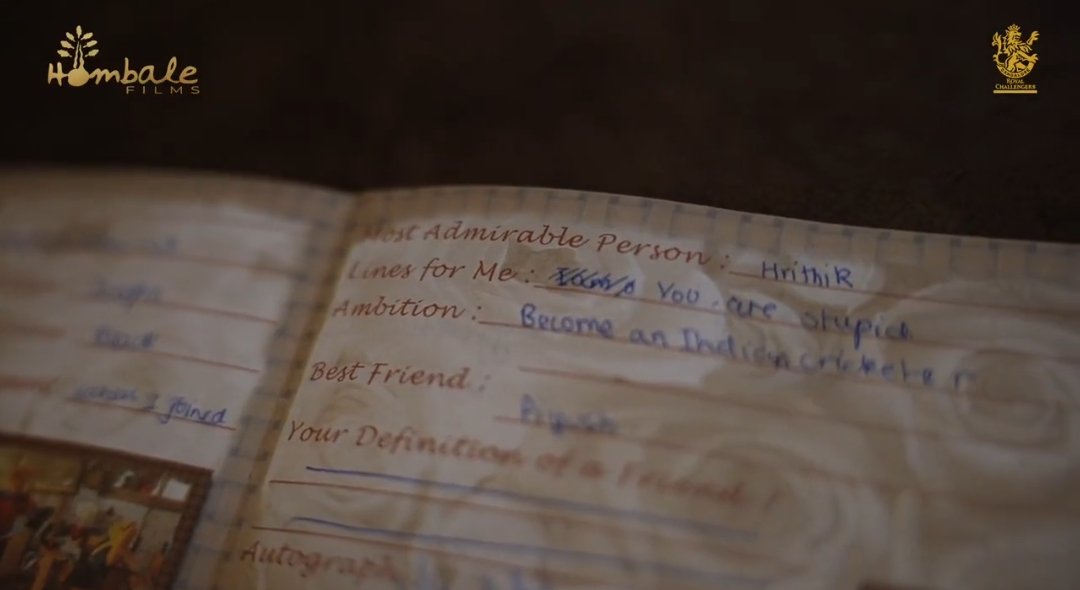 Hombale
FILMS
ROYAL
CHALLENGERS
Most Admirable Person : HrithiR
Lines for Me : You are stupid
Ambition : Become an Indian cricketer
Best Friend :
Your Definition of a Friend !
Autograph
Black
I joined